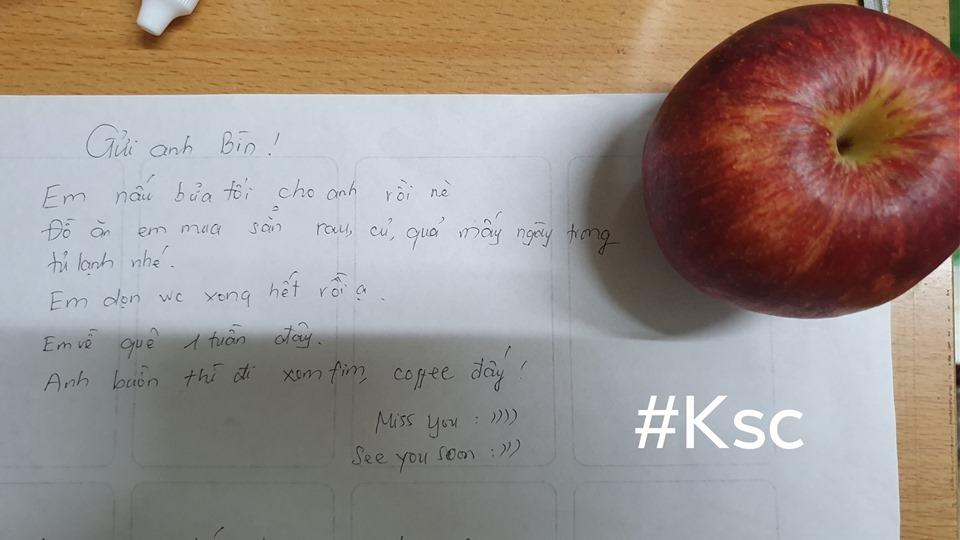 Gửi anh Bin!
Em nấu bửa tối cho anh rồi nè
Đồ ăn em mua sẳn rau, củ, quả mấy ngày trong
tủ lạnh nhé.
Em dọn wc xong hết rồi ạ.
Em về quê 1 tuần đây.
Anh buồn thì đi xem fim, coffee đấy!
Miss you :))))
See you soon :)))
#Ksc